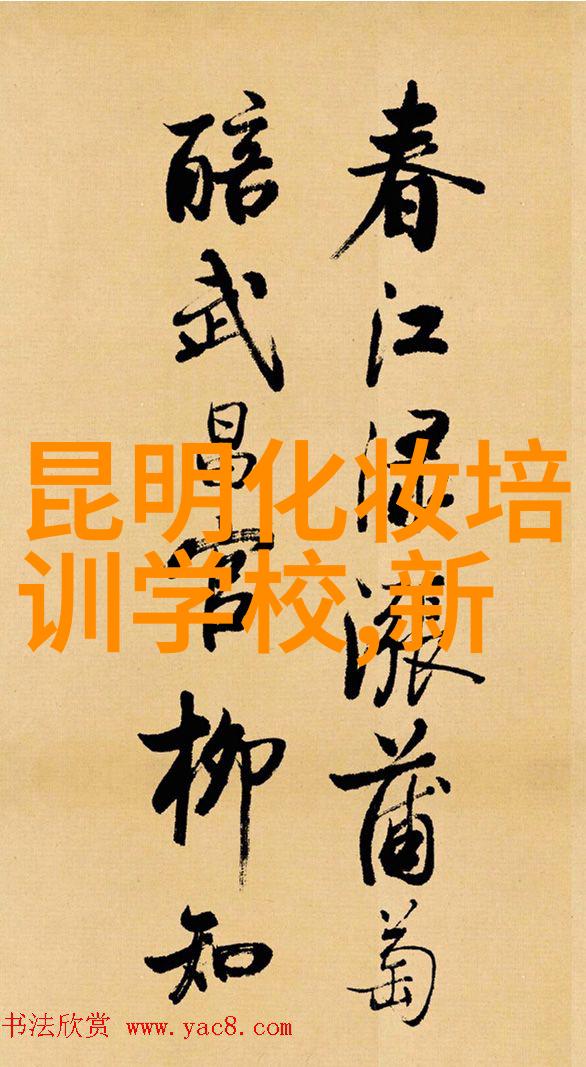 春江渌涨蒲萄
醅武昌官柳知
昆明化妆培
训学校,新
书法欣赏 www.yac8.com